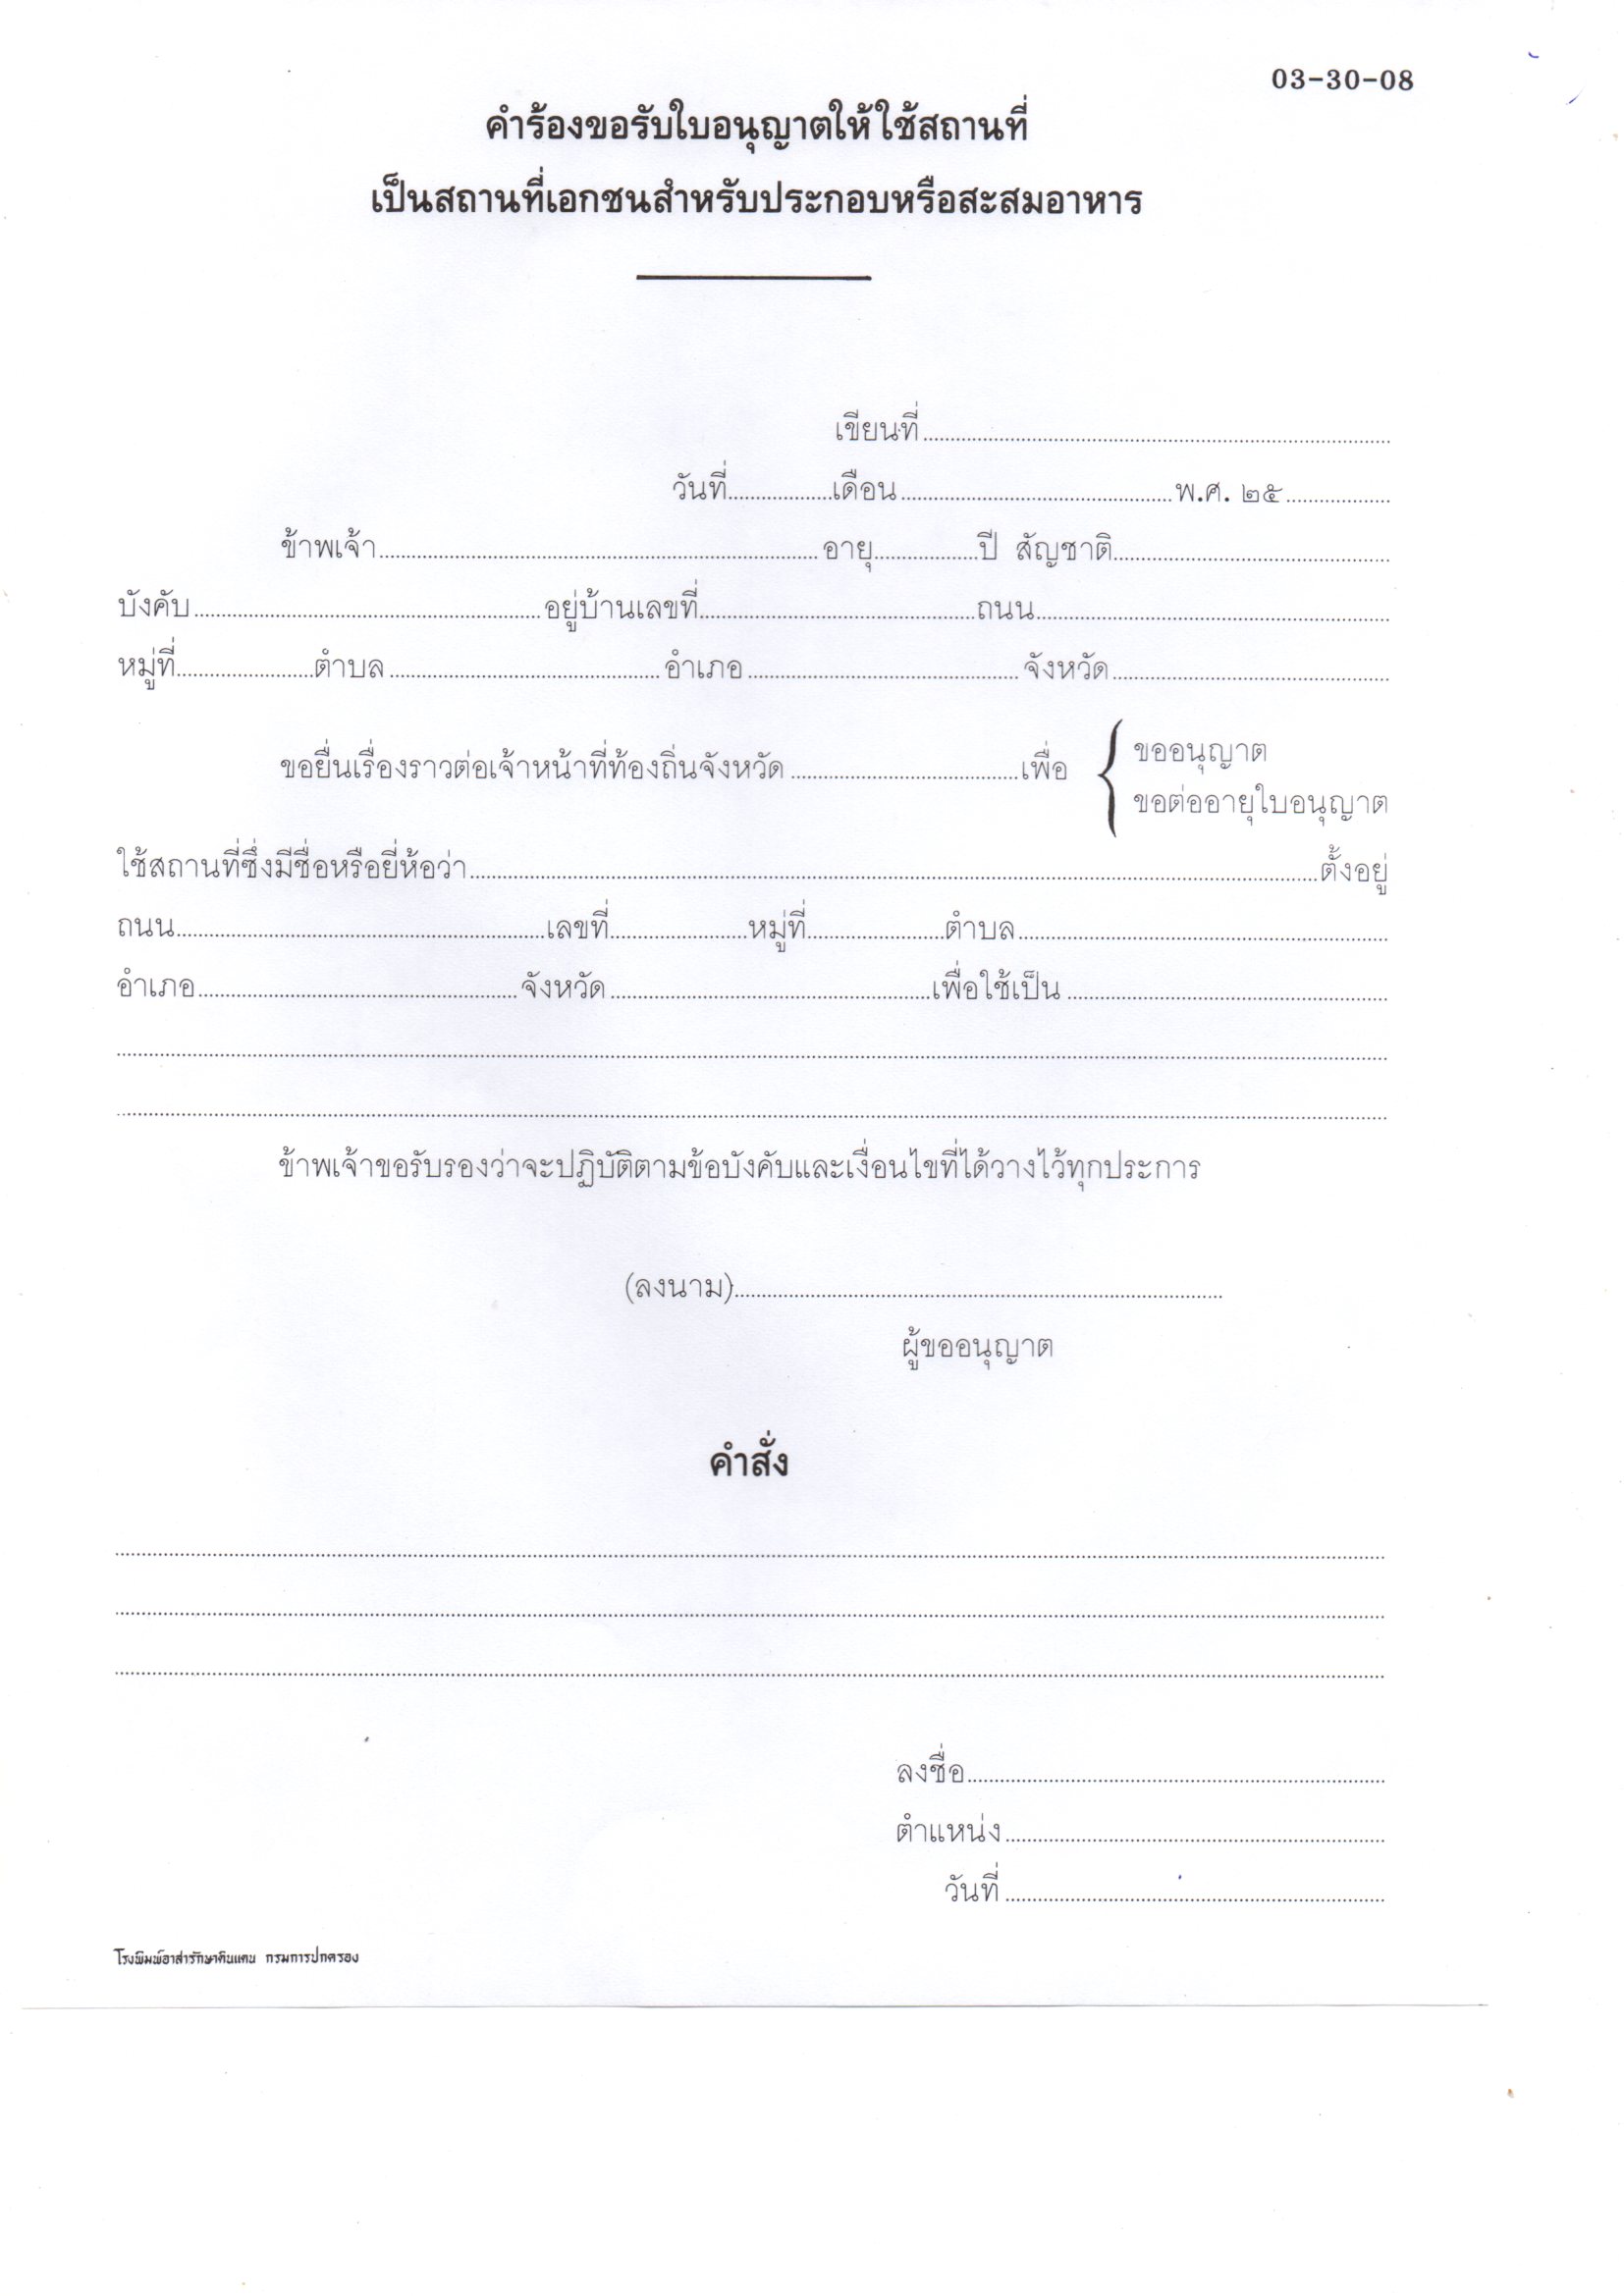 03-30-08
คำร้องขอรับใบอนุญาตให้ใช้สถานที่
เป็นสถานที่เอกชนสำหรับประกอบหรือสะสมอาหาร
เขียนที่
วันที่ เดือน พ.ศ. ๒๕
ข้าพเจ้า อายุ ปี สัญชาติ
บังคับ อยู่บ้านเลขที่ ถนน
หมู่ที่ ตำบล อำเภอ จังหวัด
ขออนุญาต
ขอยื่นเรื่องราวต่อเจ้าหน้าที่ท้องถิ่นจังหวัด เพื่อ
ขอต่ออายุใบอนุญาต
ใช้สถานที่ซึ่งมีชื่อหรือยี่ห้อว่า ตั้งอยู่
ถนน เลขที่ หมู่ที่ ตำบล
อำเภอ จังหวัด เพื่อใช้เป็น
ข้าพเจ้าขอรับรองว่าจะปฏิบัติตามข้อบังคับและเงื่อนไขที่ได้วางไว้ทุกประการ
(ลงนาม)
ผู้ขออนุญาต
คำสั่ง
ลงชื่อ
ตำแหน่ง
วันที่
โรงพิมพ์อาสารักษาดินแดน กรมการปกครอง